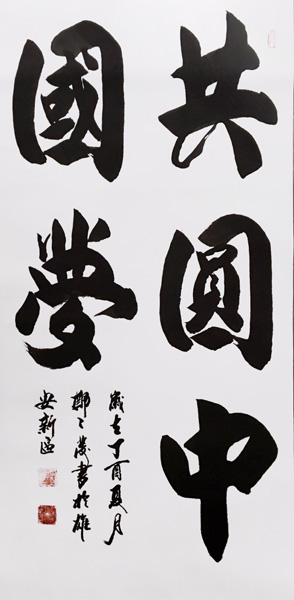 共圓中
國夢
歲在丁酉夏月
鄭書於雄
安新區